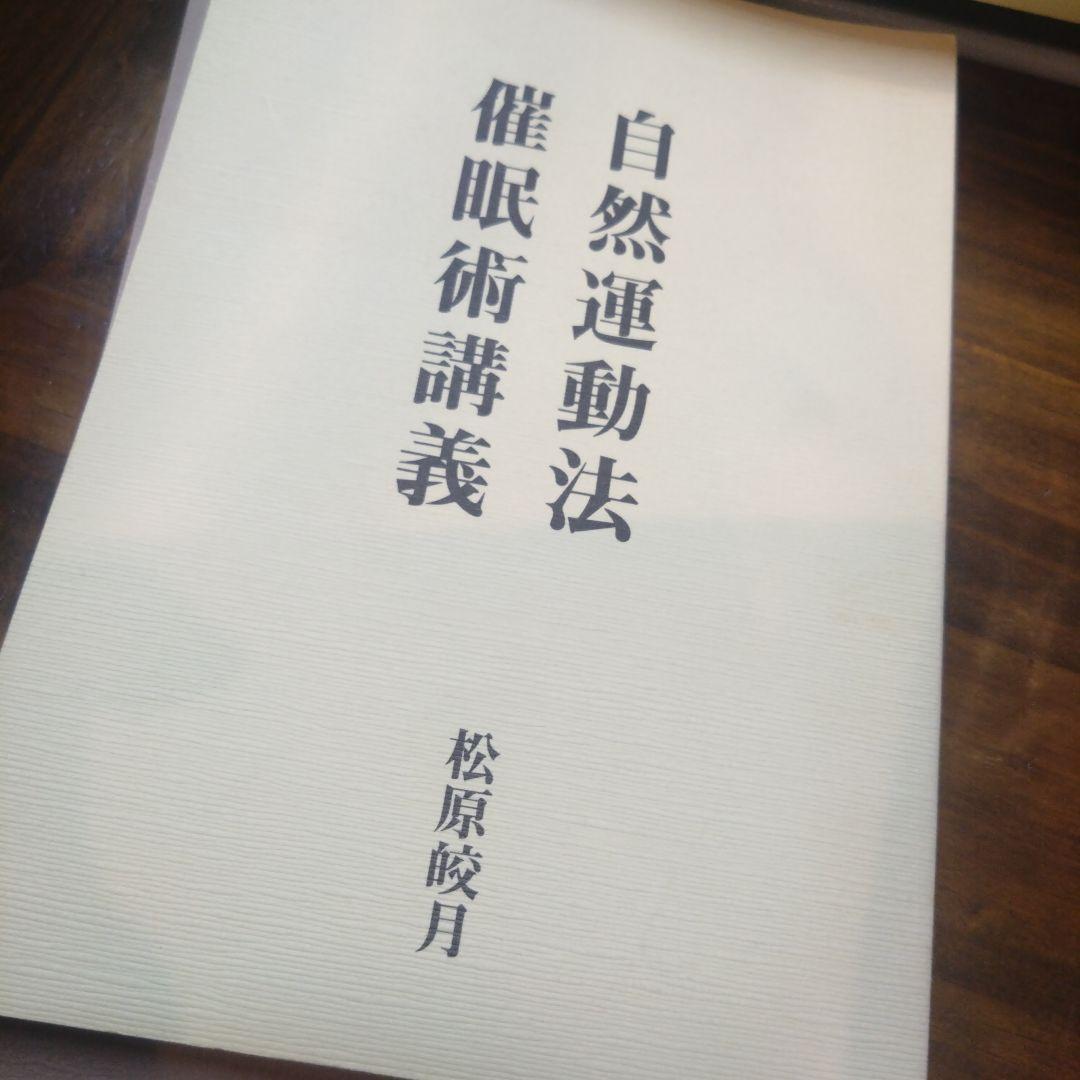 自然運動法
催眠術講義
松原皎月